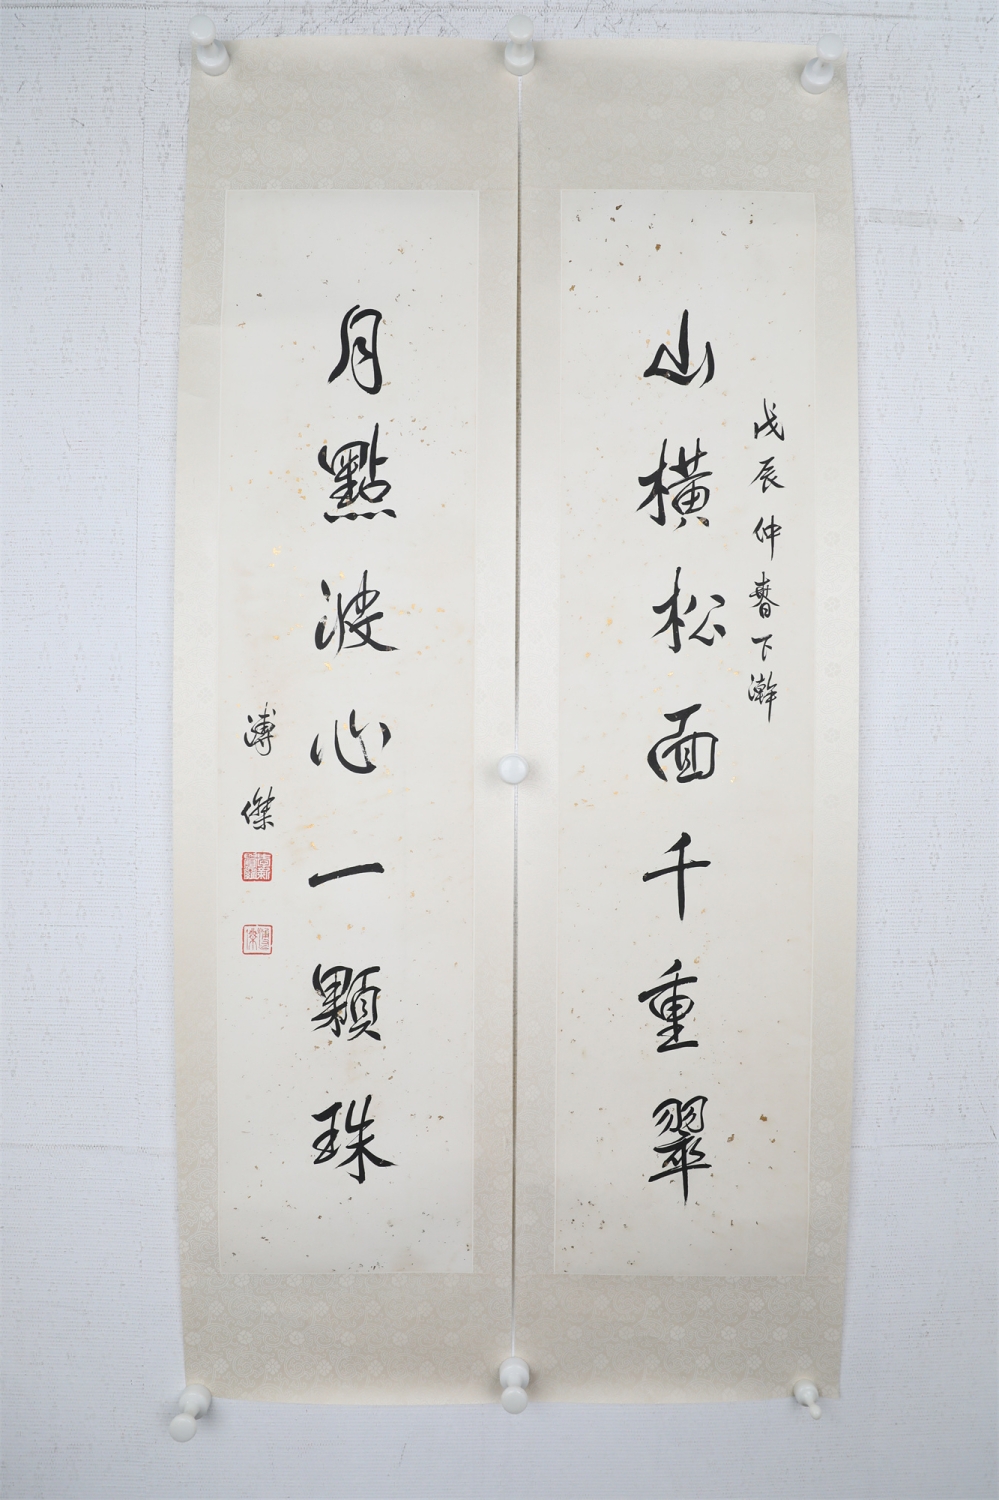 戊辰仲春下澣
山橫松面千重翠
月點波心一顆珠
溥傑